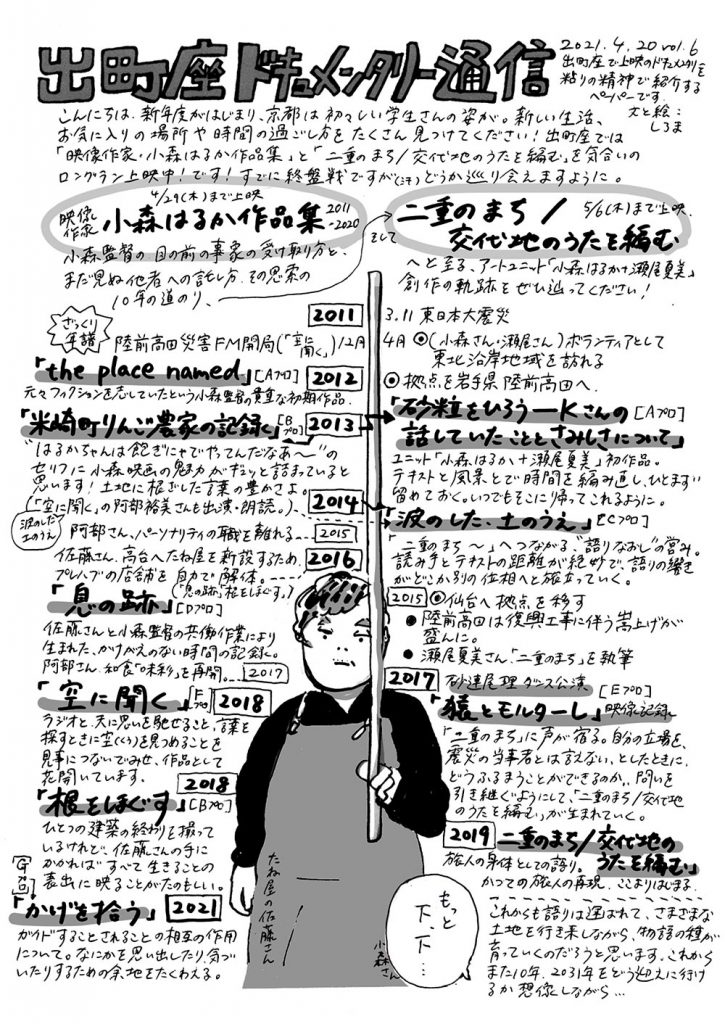 出町座ドキュメンタリー通信
2021.4.20 vol.6
出町座で上映のドキュメンタリーを
粘りの精神で紹介する
ペーパーです。
文と絵:
しろま
こんにちは。新年度がはじまり、京都は初々しい学生さんの姿が。新しい生活、
お気に入りの場所や時間の過ごし方をたくさん見つけてください!出町座では
「映像作家・小森はるか作品集」と「二重のまち/交代地のうたを編む」を気合いの
ロングラン上映中!です!すでに終盤戦ですが(汗)どうか巡り会えますように。
4/29(木)まで上映
映像作家 小森はるか作品集 2011-2020
小森監督の目の前の事象の受け取り方と、
まだ見ぬ他者への託し方、その思索の
10年の道のり、
そして
二重のまち/
5/6(木)まで上映。
交代地のうたを編む
へと至る、アートユニット「小森はるか+瀬尾夏美」
創作の軌跡をぜひ辿ってください!
ざっくり年譜
2011
3.11 東日本大震災
陸前高田災害FM開局(「空に聞く」)12月
4月 ◎(小森さん・瀬尾さん)ボランティアとして
東北沿岸地域を訪れる
「the place named」[Aプロ]
2012
◎拠点を岩手県陸前高田へ。
元々フィクションを志していたという小森監督の貴重な初期作品。
「米崎町りんご農家の記録」[Bプロ]
2013
"はるかちゃんは飽ぎにゃでやってんだなあ〜"の
セリフに小森映画の魅力がギュッと詰まっていると
思います!土地に根ざした言葉の豊かさよ。
(「空に聞く」の阿部裕美さんも出演・朗読。)
「砂粒をひろう―Kさんの[Aプロ]
話していたこととさみしさについて」
ユニット「小森はるか+瀬尾夏美」初作品。
テキストと風景とで時間を編み直し、ひとまず
留めておく。いつでもそこに帰ってこれるように。
2014
波のした、土のうえ
「波のした、土のうえ」[Cプロ]
阿部さん、パーソナリティの職を離れる…
2015
佐藤さん、高台へたね屋を新設するため、
プレハブの店舗を自力で解体。
2016
(「息の跡」「根をほぐす」)
「二重のまち〜」へつながる"語りなおし"の営み。
読み手とテキストの距離が絶妙で、語りの響き
がどこか別の位相へと旅立っていく。
「息の跡」[Dプロ]
佐藤さんと小森監督の共働作業により
生まれた、かけがえのない時間の記録。
2015 ◎仙台へ拠点を移す
● 陸前高田は復興工事に伴う嵩上げが
盛んに。
● 瀬尾夏美さん「二重のまち」を執筆
阿部さん、和食「味彩」を再開
2017
「空に聞く」[Fプロ]
2018
ラジオと、天に思いを馳せること、言葉を
探すときに空(くう)を見つめることを
見事につないでみせ、作品として
花開いています。
2017 砂連尾理ダンス公演 [Eプロ]
「猿とモルターレ」映像記録
「二重のまち」に声が宿る。自分の立場を、
震災の当事者とは言えない、としたときに、
どうふるまうことができるのか。問いを
引き継ぐようにして、「二重のまち/交代地
のうたを編む」が生まれていく。
2018
「根をほぐす」[Bプロ]
ひとつの建築の終わりを撮って
いるけれど、佐藤さんの手に
かかればすべて生きることの
表出に映ることがたのもしい。
2019 二重のまち/交代地の
うたを編む」
旅人の身体としての語り。
かつての旅人の再現。ここよりはじまる。
[Gプロ]
「かげを拾う」 2021
ガイドすることされることの相互の作用
について。なにかを思い出したり、気づ
いたりするための余地をたくわえる。
これからも語りは運ばれて、さまざまな
土地を行き来しながら、物語の種が
育っていくのだろうと思います。これから
また10年、2031年をどう迎えに行ける
か想像しながら…
たね屋の佐藤さん
もっと
下、下…
小森さん